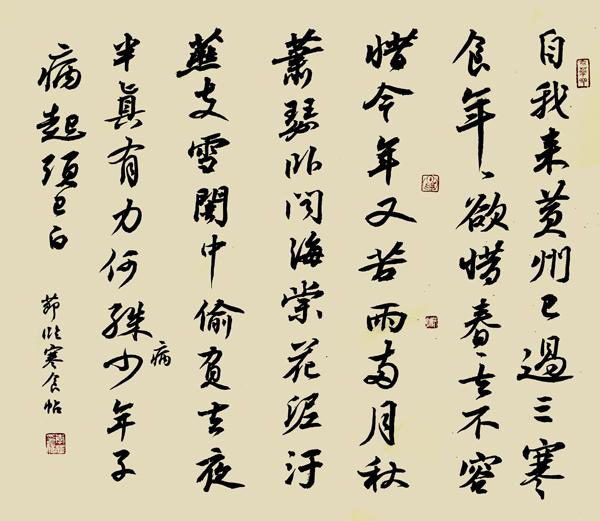 自我来黄州已過三寒
食年、欲惜春、去不容
惜今年又苦雨兩月秋
蕭瑟卧聞海棠花泥汙
燕支雪闇中偷負去夜
半眞有力何殊少年子
病
病起頭已白
節臨寒食帖